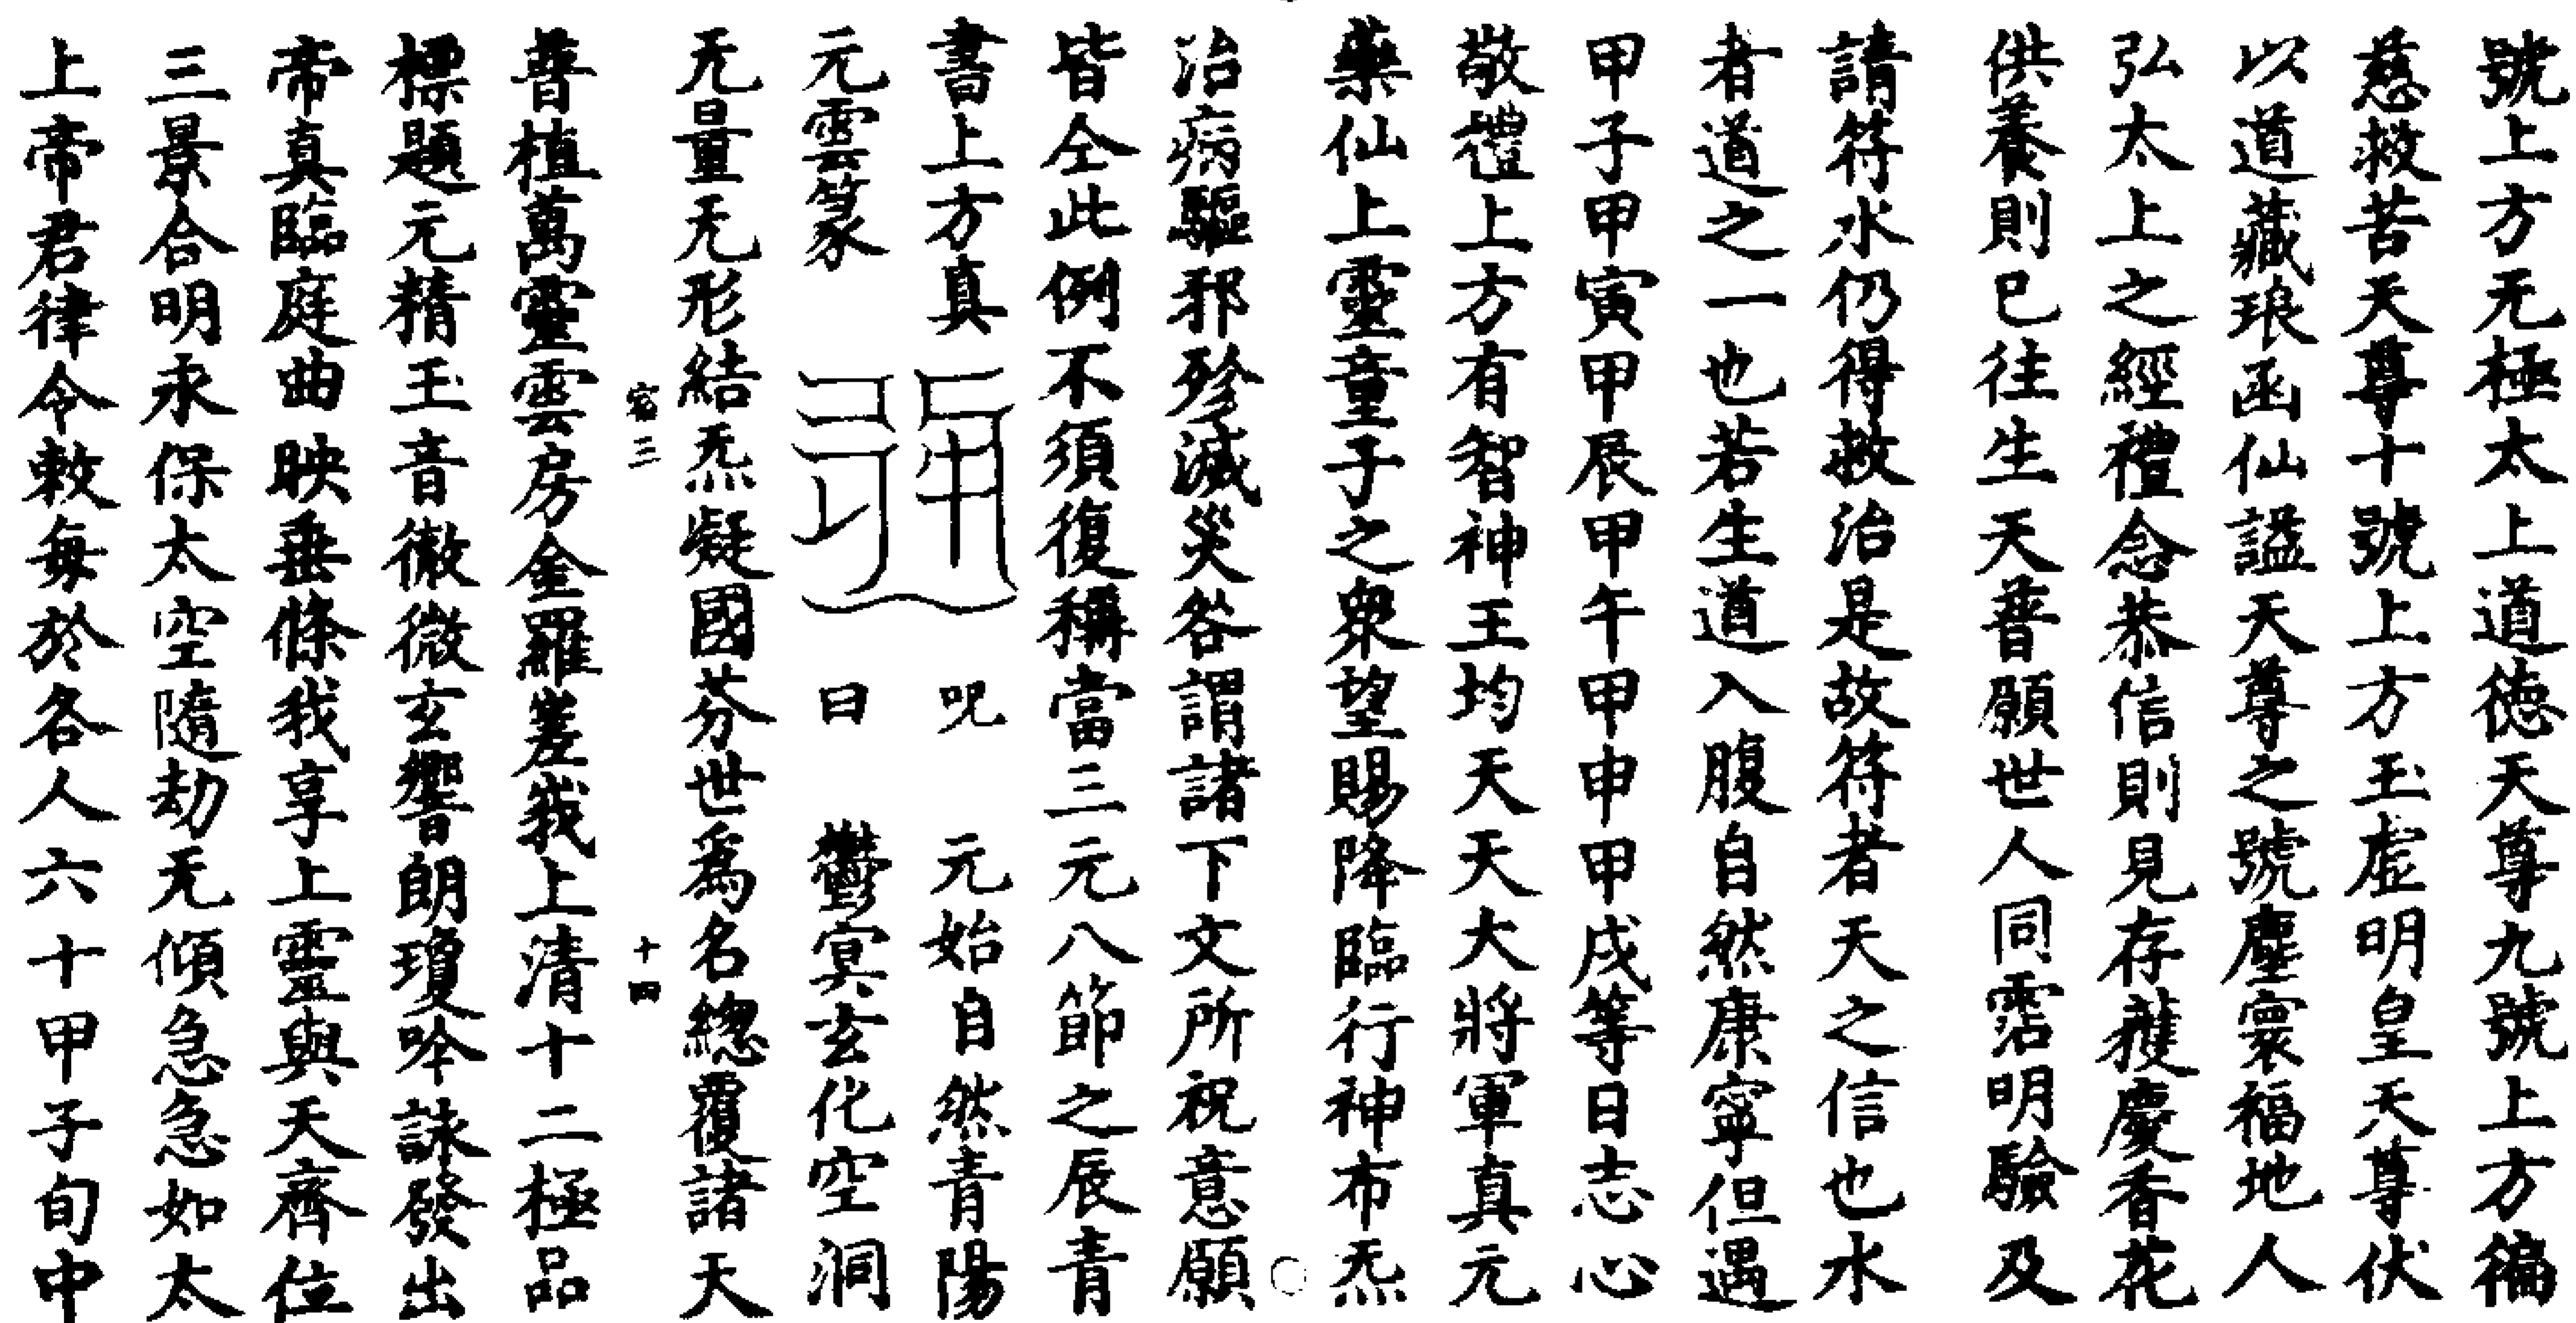 號上方无極太上道德天尊九號上方徧
慈救苦天尊十號上方玉虛明皇天尊伏
以道藏琅函仙諡天尊之號塵寰福地人
弘太上之經禮念恭信則見存獲慶香花
供養則已往生天普願世人同霑明驗及
請符水仍得救治是故符者天之信也水
者道之一也若生道入腹自然康寧但遇
甲子甲寅甲辰甲午甲申甲戌等日志心
敬禮上方有智神王均天天大將軍真元
藥仙上靈童子之衆望賜降臨行神布炁
治病驅邪殄滅災咎謂諸下文所祝意願
皆仝此例不須復稱當三元八節之辰青
書上方真 呪 元始自然青陽
元雲篆 曰 鬱冥玄化空洞
无量无形結炁凝國芬世爲名總覆諸天
宿三 十四
普植萬靈雲房金羅嵳峩上清十二極品
標題元精玉音徹微玄響朗瓊吟詠發出
帝真臨庭曲映垂條我享上靈與天齊位
三景合明永保太空隨劫无傾急急如太
上帝君律令敕每於各人六十甲子旬中